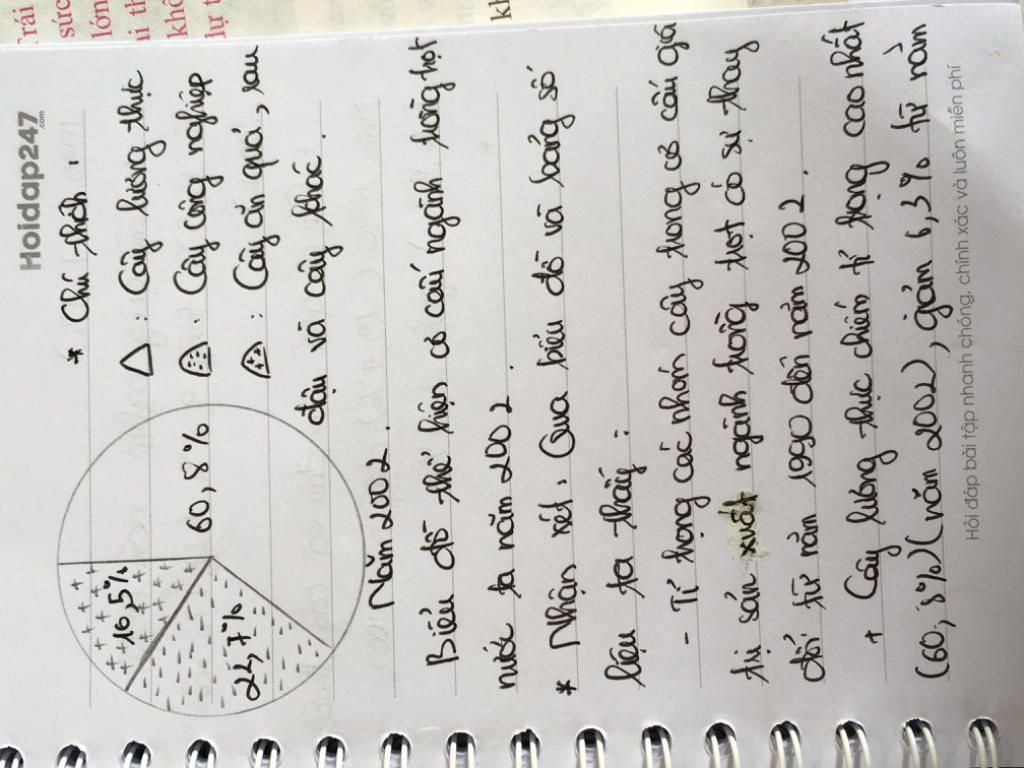 Hoidap247
.com
* Chú thích :
: Cây lương thực
: Cây công nghiệp
: Cây ăn quả, rau
đậu và cây khác.
60,8%
16,5%
22,7%
Năm 2002.
Biểu đồ thể hiện cơ cấu ngành trồng trọt
nước ta năm 2002.
* Nhận xét: Qua biểu đồ và bảng số
liệu ta thấy:
- Tỉ trọng các nhóm cây trong cơ cấu giá
trị sản xuất ngành trồng trọt có sự thay
đổi từ năm 1990 đến năm 2002.
+ Cây lương thực chiếm tỉ trọng cao nhất
(60,8%) (năm 2002), giảm 6,3% từ năm
Hỏi đáp bài tập nhanh chóng, chính xác và luôn miễn phí
rái
sức
lớn
ui th
khô
lự t
kh